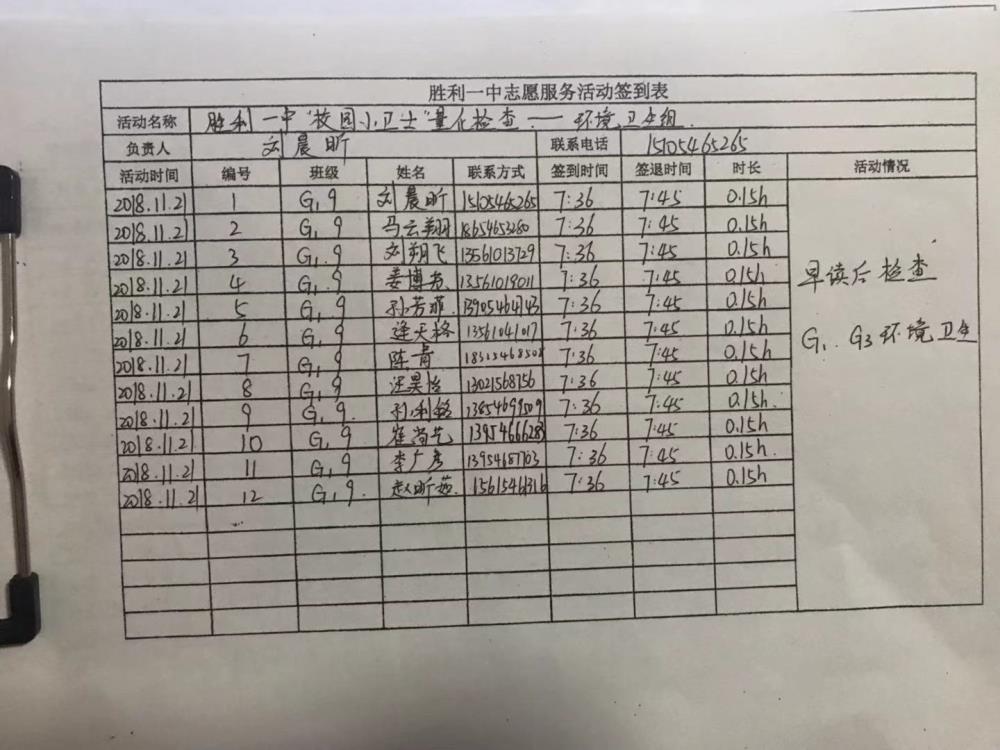 胜利一中志愿服务活动签到表
活动名称 胜利一中"校园小卫士"量化检查——环境卫生组
负责人 刘晨昕 联系电话 15105465265
活动时间 编号 班级 姓名 联系方式 签到时间 签退时间 时长 活动情况
2018.11.21 1 G1.9 刘晨昕 15105465265 7:36 7:45 0.15h
2018.11.21 2 G1.9 马云翔 18654653280 7:36 7:45 0.15h
2018.11.21 3 G1.9 刘翔飞 13561013729 7:36 7:45 0.15h
2018.11.21 4 G1.9 姜博 13561019011 7:36 7:45 0.15h
2018.11.21 5 G1.9 孙芳菲 13905464143 7:36 7:45 0.15h
2018.11.21 6 G1.9 逄天格 13561041017 7:36 7:45 0.15h
2018.11.21 7 G1.9 陈青 7:36 7:45 0.15h
2018.11.21 8 G1.9 汪昊怡 13021568756 7:36 7:45 0.15h
2018.11.21 9 G1.9 7:36 7:45 0.15h
2018.11.21 10 G1.9 崔尚艺 7:36 7:45 0.15h
2018.11.21 11 G1.9 李广彦 13954687703 7:36 7:45 0.15h
2018.11.21 12 G1.9 赵昕茹 1561546316 7:36 7:45 0.15h
早读后检查
G1. G3环境卫生